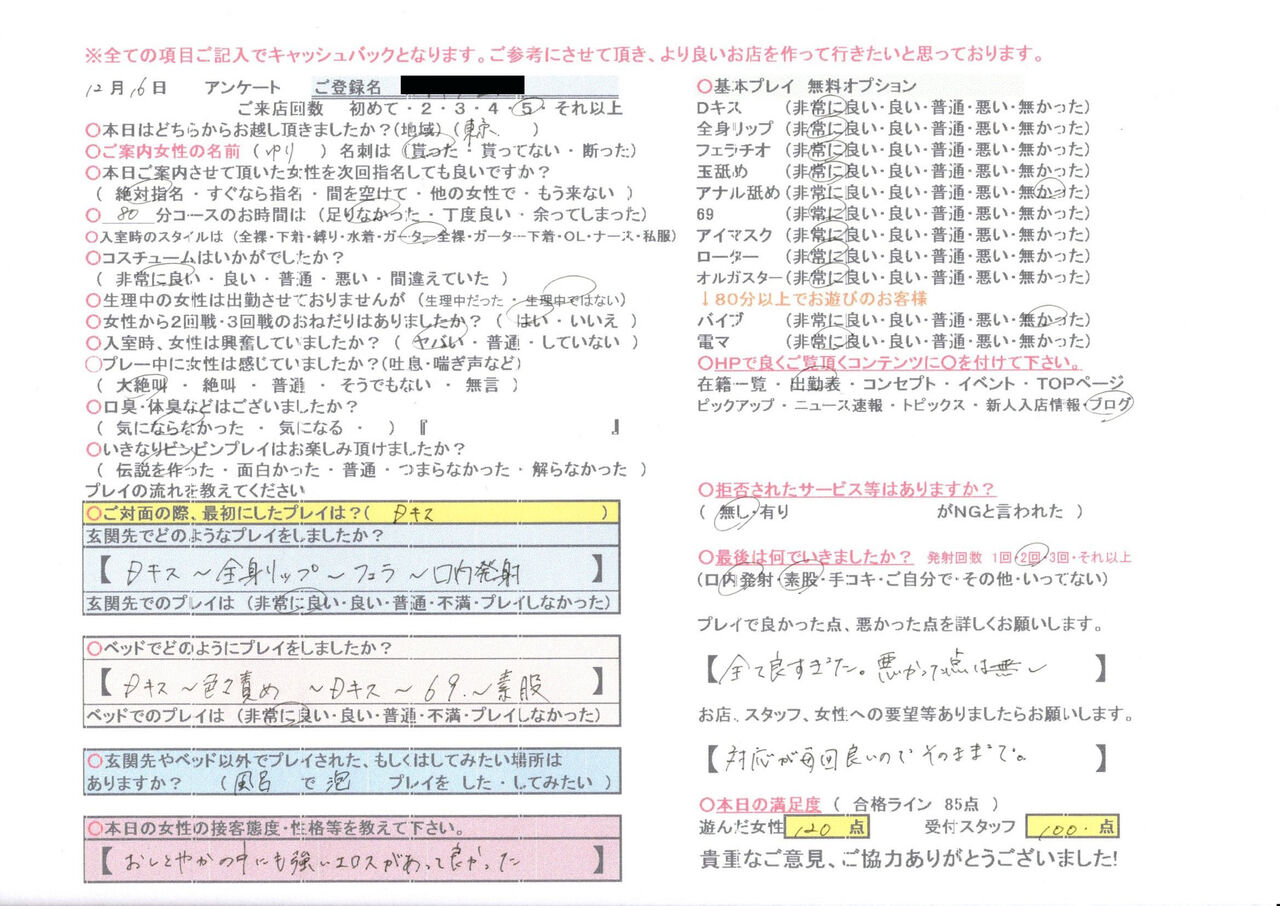 ※全ての項目ご記入でキャッシュバックとなります。ご参考にさせて頂き、より良いお店を作って行きたいと思っております。
12月16日 アンケート ご登録名
ご来店回数 初めて・2・3・4・5・それ以上
〇本日はどちらからお越し頂きましたか?(地域)(東京 )
〇ご案内女性の名前 (ゆり ) 名刺は (貰った・貰ってない・断った)
〇本日ご案内させて頂いた女性を次回指名しても良いですか?
( 絶対指名・すぐなら指名・間を空けて・他の女性で・もう来ない )
〇 80 分コースのお時間は (足りなかった・丁度良い・余ってしまった)
〇入室時のスタイルは (全裸・下着・縛り・水着・ガーター全裸・ガーター下着・OL・ナース・私服)
〇コスチュームはいかがでしたか?
( 非常に良い・良い・普通・悪い・間違えていた )
〇生理中の女性は出勤させておりませんが (生理中だった・生理中ではない)
〇女性から2回戦・3回戦のおねだりはありましたか? ( はい・いいえ )
〇入室時、女性は興奮していましたか? ( ヤバい・普通・していない )
〇プレー中に女性は感じていましたか?(吐息・喘ぎ声など)
( 大絶叫・絶叫・普通・そうでもない・無言 )
〇口臭・体臭などはございましたか?
( 気にならなかった・気になる・ ) 『 』
〇いきなりビンビンプレイはお楽しみ頂けましたか?
( 伝説を作った・面白かった・普通・つまらなかった・解らなかった )
プレイの流れを教えてください
〇ご対面の際、最初にしたプレイは?( Dキス )
玄関先でどのようなプレイをしましたか?
【 Dキス～全身リップ～フェラ～口内発射 】
玄関先でのプレイは (非常に良い・良い・普通・不満・プレイしなかった)
〇ベッドでどのようにプレイをしましたか?
【 Dキス～色々責め ～Dキス～69.～素股 】
ベッドでのプレイは (非常に良い・良い・普通・不満・プレイしなかった)
〇玄関先やベッド以外でプレイされた、もしくはしてみたい場所は
ありますか? (風呂 で 泡 プレイを した・してみたい )
〇本日の女性の接客態度・性格等を教えて下さい。
【 おしとやかの中にも強いエロスがあって良かった 】
〇基本プレイ 無料オプション
Dキス (非常に良い・良い・普通・悪い・無かった)
全身リップ (非常に良い・良い・普通・悪い・無かった)
フェラチオ (非常に良い・良い・普通・悪い・無かった)
玉舐め (非常に良い・良い・普通・悪い・無かった)
アナル舐め (非常に良い・良い・普通・悪い・無かった)
69 (非常に良い・良い・普通・悪い・無かった)
アイマスク (非常に良い・良い・普通・悪い・無かった)
ローター (非常に良い・良い・普通・悪い・無かった)
オルガスター (非常に良い・良い・普通・悪い・無かった)
↓80分以上でお遊びのお客様
バイブ (非常に良い・良い・普通・悪い・無かった)
電マ (非常に良い・良い・普通・悪い・無かった)
〇HPで良くご覧頂くコンテンツに〇を付けて下さい。
在籍一覧・出勤表・コンセプト・イベント・TOPページ
ピックアップ・ニュース速報・トピックス・新人入店情報・ブログ
〇拒否されたサービス等はありますか?
( 無し・有り がNGと言われた )
〇最後は何でいきましたか? 発射回数 1回・2回・3回・それ以上
(口内発射・素股・手コキ・ご自分で・その他・いってない)
プレイで良かった点、悪かった点を詳しくお願いします。
【全て良すぎた。悪かった点は無～ 】
お店、スタッフ、女性への要望等ありましたらお願いします。
【対応が毎回良いのでそのままで。 】
〇本日の満足度 ( 合格ライン 85点 )
遊んだ女性 120 点 受付スタッフ 100. 点
貴重なご意見、ご協力ありがとうございました!